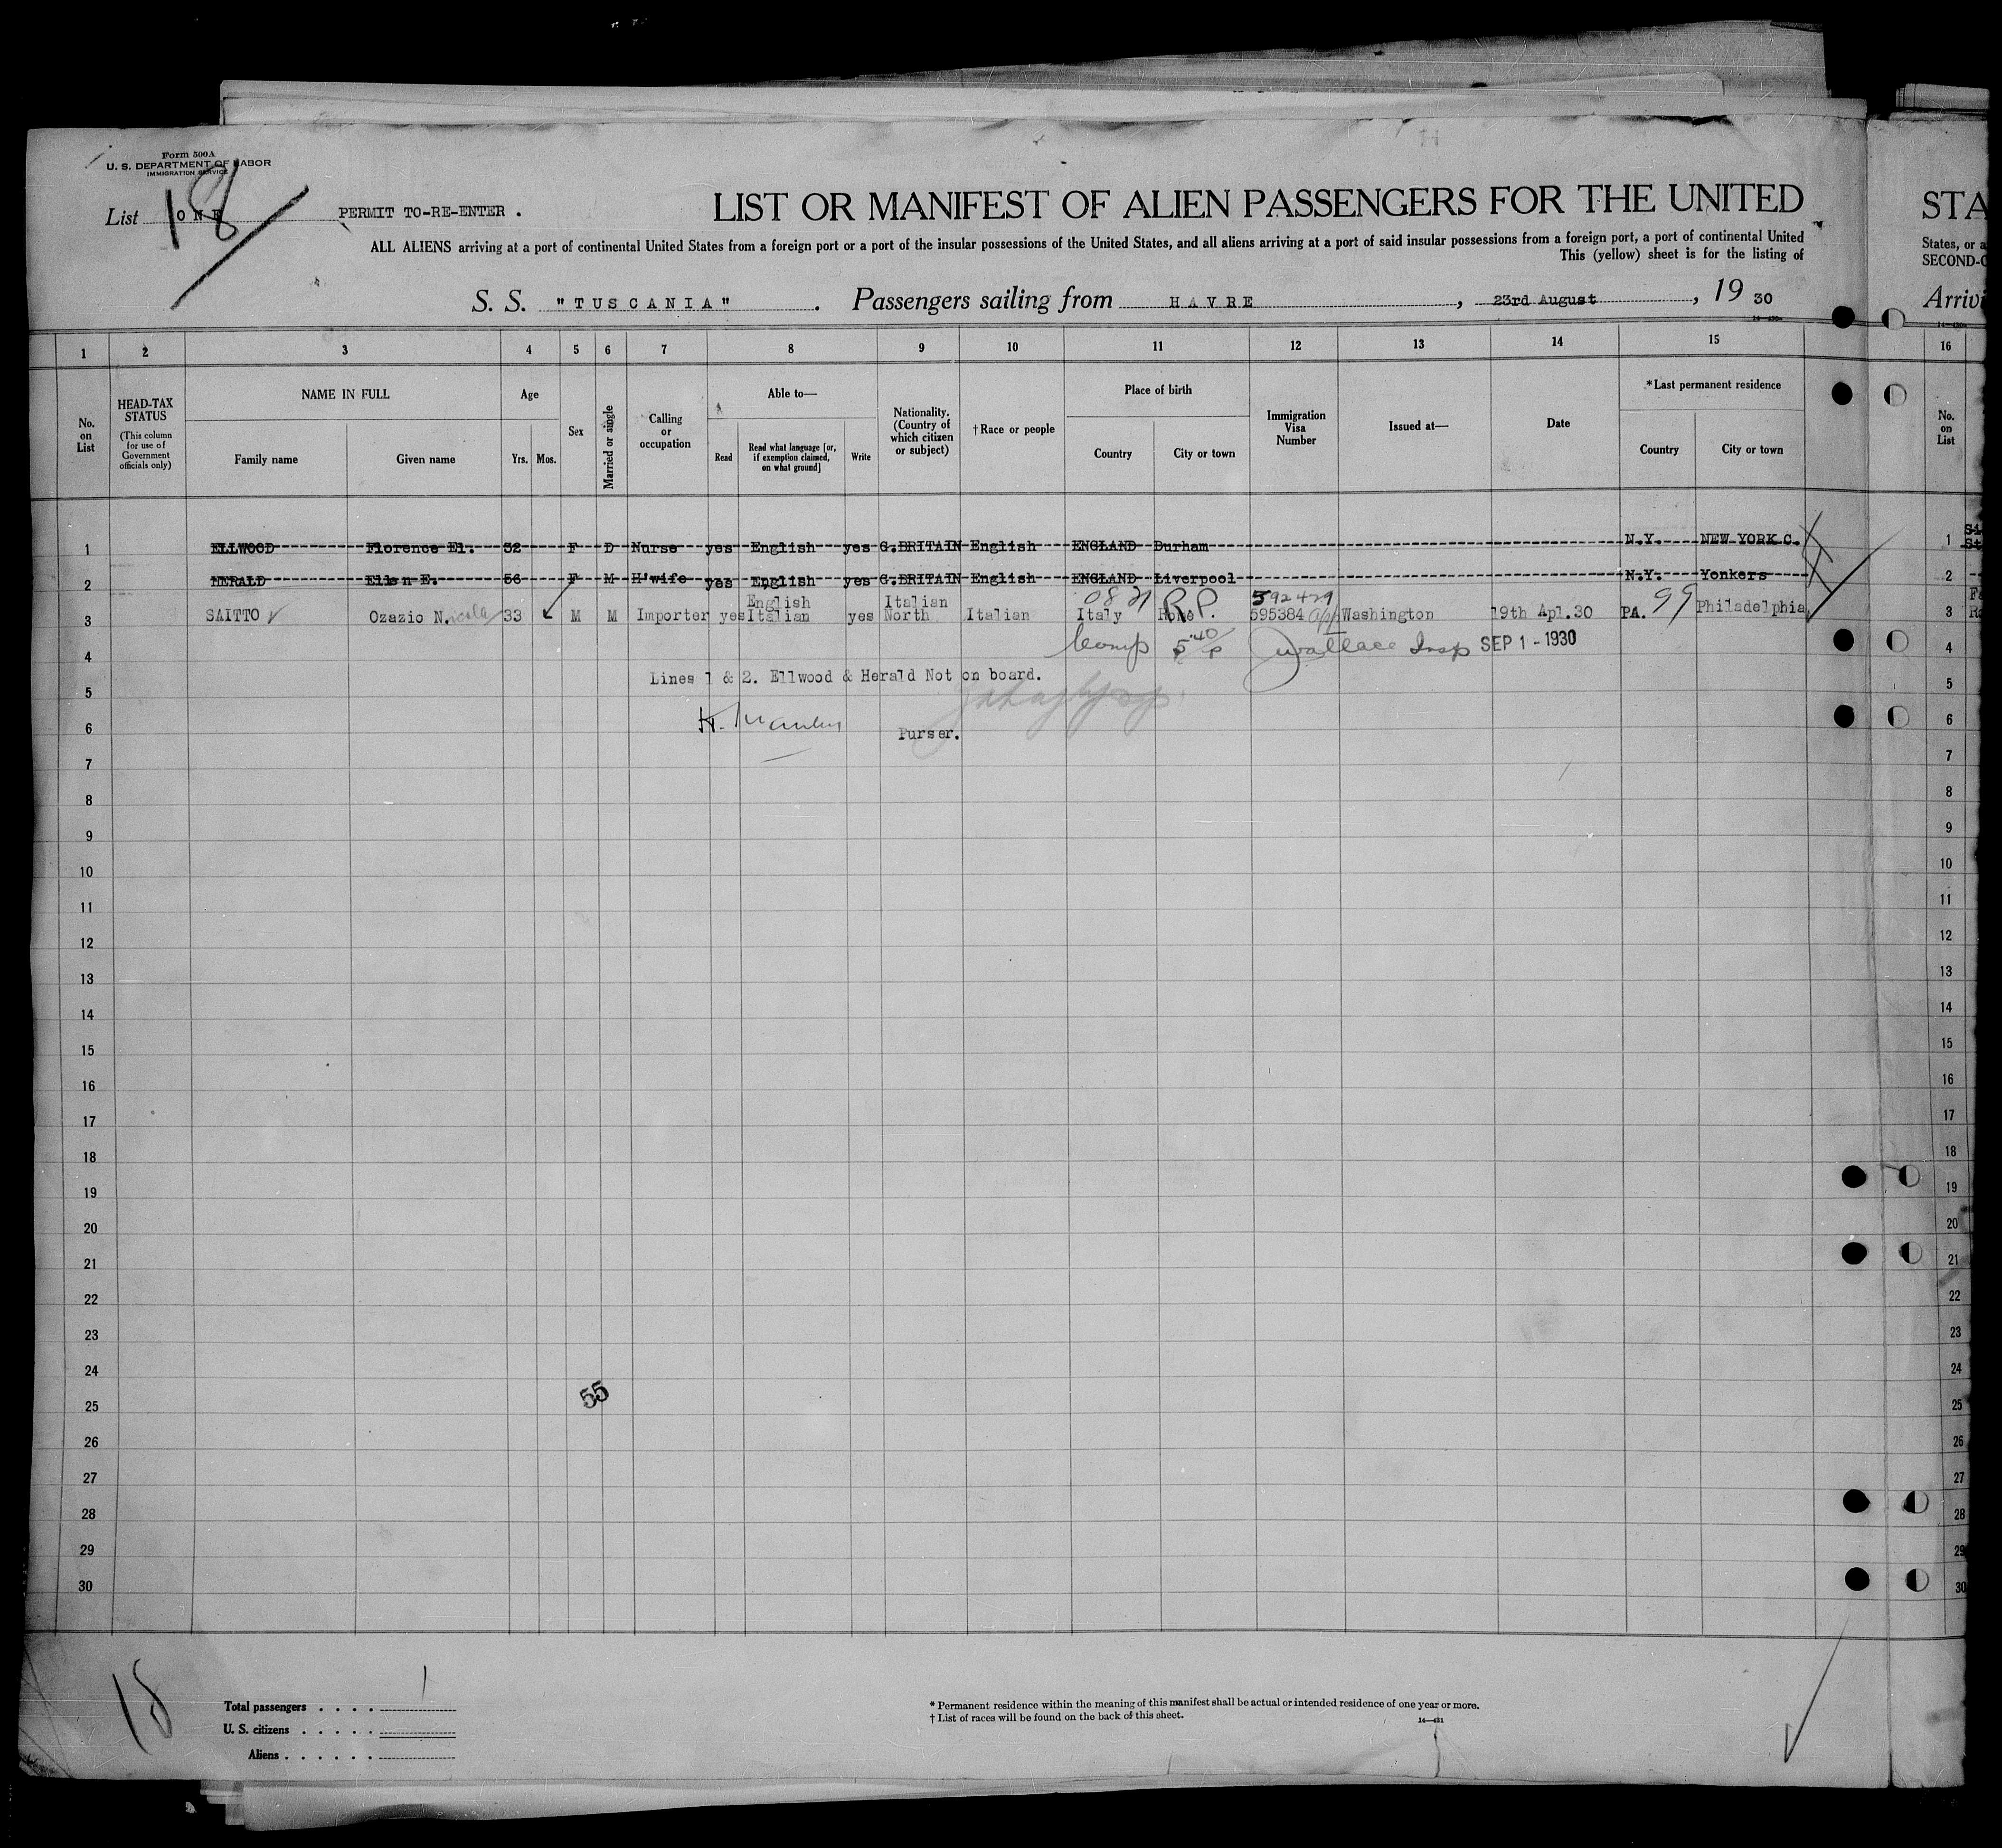 Form 500A
U. S. DEPARTMENT OF LABOR
IMMIGRATION SERVICE
List ONE PERMIT TO-RE-ENTER .
18
LIST OR MANIFEST OF ALIEN PASSENGERS FOR THE UNITED
STA
ALL ALIENS arriving at a port of continental United States from a foreign port or a port of the insular possessions of the United States, and all aliens arriving at a port of said insular possessions from a foreign port, a port of continental United
States, or a
This (yellow) sheet is for the listing of
SECOND-C
S. S. "TUSCANIA" . Passengers sailing from HAVRE , 23rd August , 19 30
Arrivi
1 2 3 4 5 6 7 8 9 10 11 12 13 14 15 16
No. on List
HEAD-TAX STATUS
(This column for use of Government officials only)
NAME IN FULL
Family name
Given name
Age
Yrs. Mos.
Sex
Married or single
Calling or occupation
Able to—
Read
Read what language [or, if exemption claimed, on what ground]
Write
Nationality. (Country of which citizen or subject)
†Race or people
Place of birth
Country
City or town
Immigration Visa Number
Issued at—
Date
*Last permanent residence
Country
City or town
No. on List
1 ELLWOOD Florence El. 32 F D Nurse yes English yes G.BRITAIN English ENGLAND Durham N.Y. NEW YORK C. 1
2 HERALD Ellen E. 56 F M H'wife yes English yes G.BRITAIN English ENGLAND Liverpool N.Y. Yonkers 2
English Italian 0821 R.P. 592429 99
3 SAITTO Ozazio N.icola 33 M M Importer yes Italian yes North Italian Italy Rome 595384 Washington 19th Apl.30 PA. Philadelphia 3
4 Comp 5 40 P Wallace Insp SEP 1 - 1930 4
Lines 1 & 2. Ellwood & Herald Not on board.
5 5
6 H. Purser. 6
7 7
8 8
9 9
10 10
11 11
12 12
13 13
14 14
15 15
16 16
17 17
18 18
19 19
20 20
21 21
22 22
23 23
24 24
55
25 25
26 26
27 27
28 28
29 29
30 30
18
Total passengers . . . . 1
U. S. citizens . . . . .
Aliens . . . . . .
* Permanent residence within the meaning of this manifest shall be actual or intended residence of one year or more.
† List of races will be found on the back of this sheet.
14—431